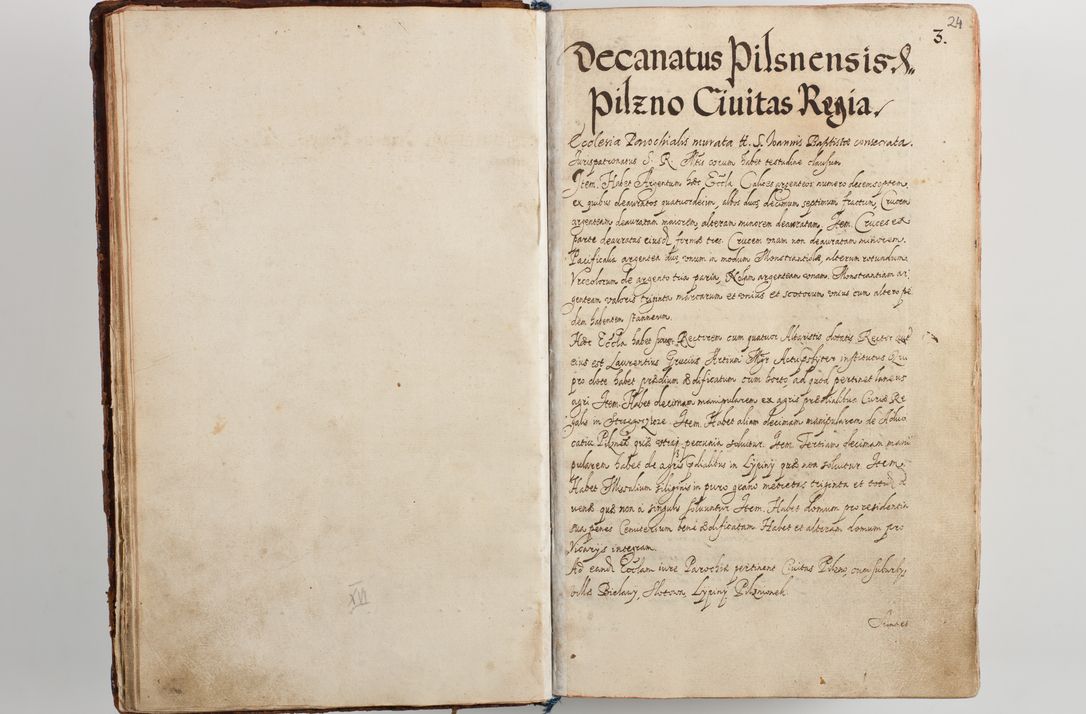 24
3.
Decanatus Pilsnensis
Pilzno Ciuitas Regia.
Ecclesia Parochialis murata tt. S. Joannis Baptistæ consecrata.
Jurispatronatus S. R. Mtis corum habet testudine clausum
Item. Habet Argentum hæc Eccla Calices argenteos numero decem septem,
ex quibus deauratos quatuordecim, albos duos, decimum septimum fractum, Crucem
argenteam deauratam maiorem, alteram minorem deauratam. Item. Cruces ex
parte deauratas eiusd formæ tres. Crucem vnam non deauratam minorem.
Pacificalia argentea duo, vnum in modum Monstrantiolæ, alterum rotundum.
Vrceolorum de argento tria paria, Nolam argenteam vnam. Monstrantiam ar
genteam valoris triginta marcarum et vnius et scotorum vnius cum altero pe
dem habentem stanneum.
Hæc Eccla habet suum Rectorem cum quatuor Altaristis dotatis Rector
eius est Laurentius Grucius Artium Mgr Actu psbyter institutus Qui
pro dote habet prædium ædificatum cum horto ad quod pertinet laneus
agri Item. Habet decimam manipularem ex agris prædialibus Curiæ Re
galis in Strzegoczicze. Item. Habet aliam decimam manipularem de Aduo
catia Pilznen quæ pecunia soluitur. Item. Tertiam decimam mani
pularem habet de agris prædialibus in Lypiny quæ non soluitur. Item.
Habet Missalium siliginis in puro grano metretas triginta et totid
uenæ quæ non a singulis soluuntur Item. Habet domum pro residentia
sua penes Cemiterium bene ædificatam Habet et alteram domum pro
Vicarijs integram.
Ad eand Ecclam iure Parochiæ pertinent Ciuitas Pilzno, cum suburbijs
villæ Bielawy, Słotowa, Lypiny Pilznionek.
XVI